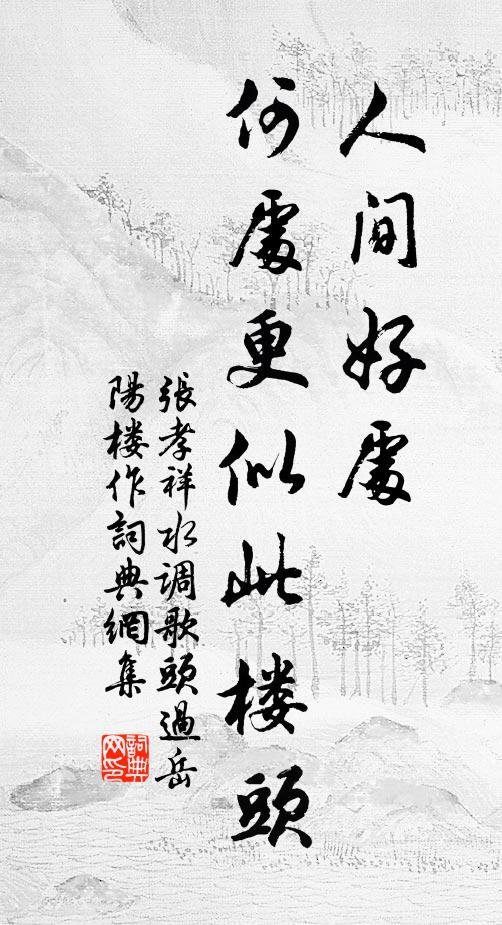 人间好處
何處更似此楼頭
張孝祥水调歌頭過岳
陽楼作詞典網集
詞典
网印